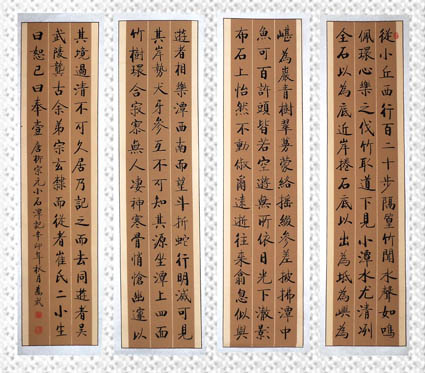 從小丘西行百二十步隔篁竹聞水聲如鳴
佩環心樂之伐竹取道下見小潭水尤清冽
全石以為底近岸捲石底以出為坻為嶼為
嵁為巖青樹翠蔓蒙絡搖綴參差披拂潭中
魚可百許頭皆若空遊無所依日光下澈影
布石上怡然不動俶爾遠逝往來翕忽似與
遊者相樂潭西南而望斗折蛇行明滅可見
其岸勢犬牙參互不可知其源坐潭上四面
竹樹環合寂寥無人凄神寒骨悄愴幽邃以
其境過清不可久居乃記之而去同遊者吳
武陵龔古余弟宗玄隸而從者崔氏二小生
曰恕己曰奉壹 唐柳宗元小石潭記辛卯年秋月